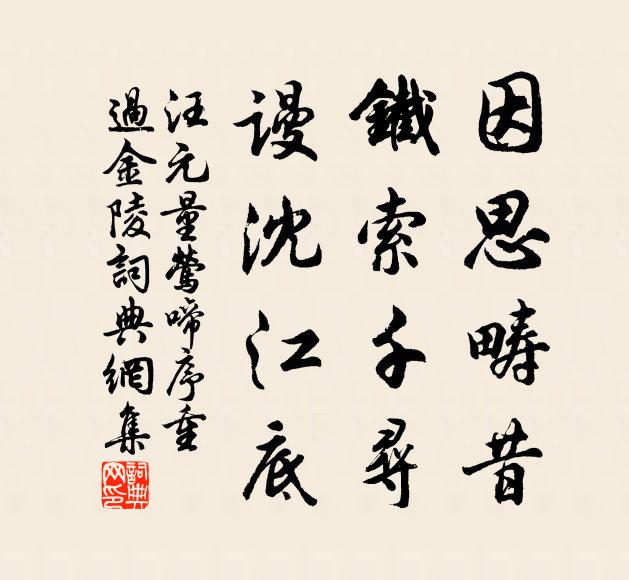 因思疇昔
鐵索千尋
謾沈江底
汪元量鶯啼序重
過金陵詞典網集
詞典
网印